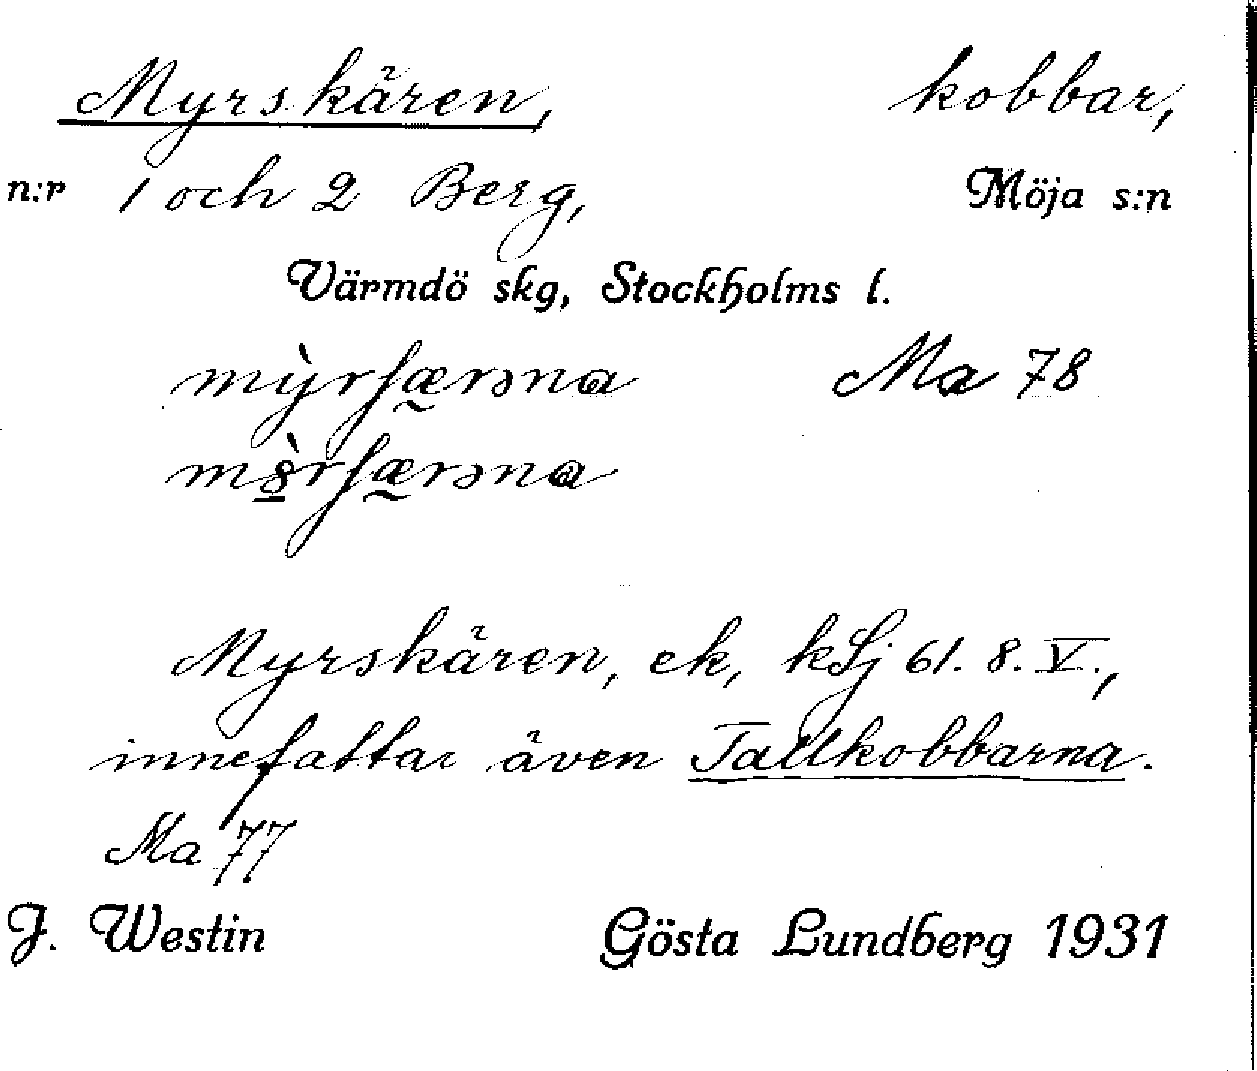 Myrskären, kobbar,
n:r 1 och 2 Berg, Möja s:n
Värmdö skg, Stockholms l.
mỳrʃæ̰rəna Ma 78
m8̱̀rʃæ̰rəna
Myrskären, ek, kSj 61. 8. V.,
innefattar även Tallkobbarna.
Ma 77
J. Westin Gösta Lundberg 1931